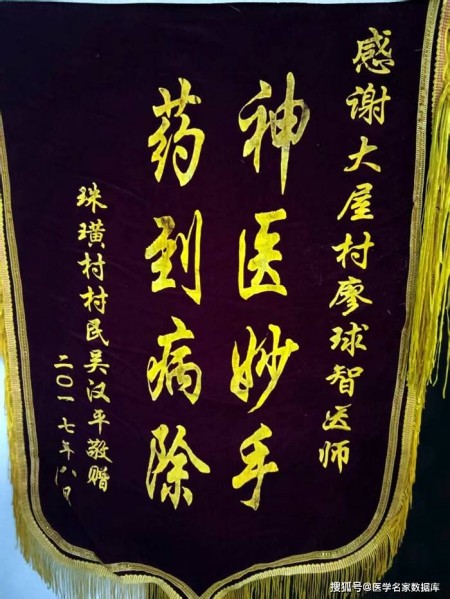 感谢大屋村廖球智医师
神医妙手
药到病除
珠璜村村民吴汉平敬赠
二〇一七年八月
搜狐号@医学名家数据库